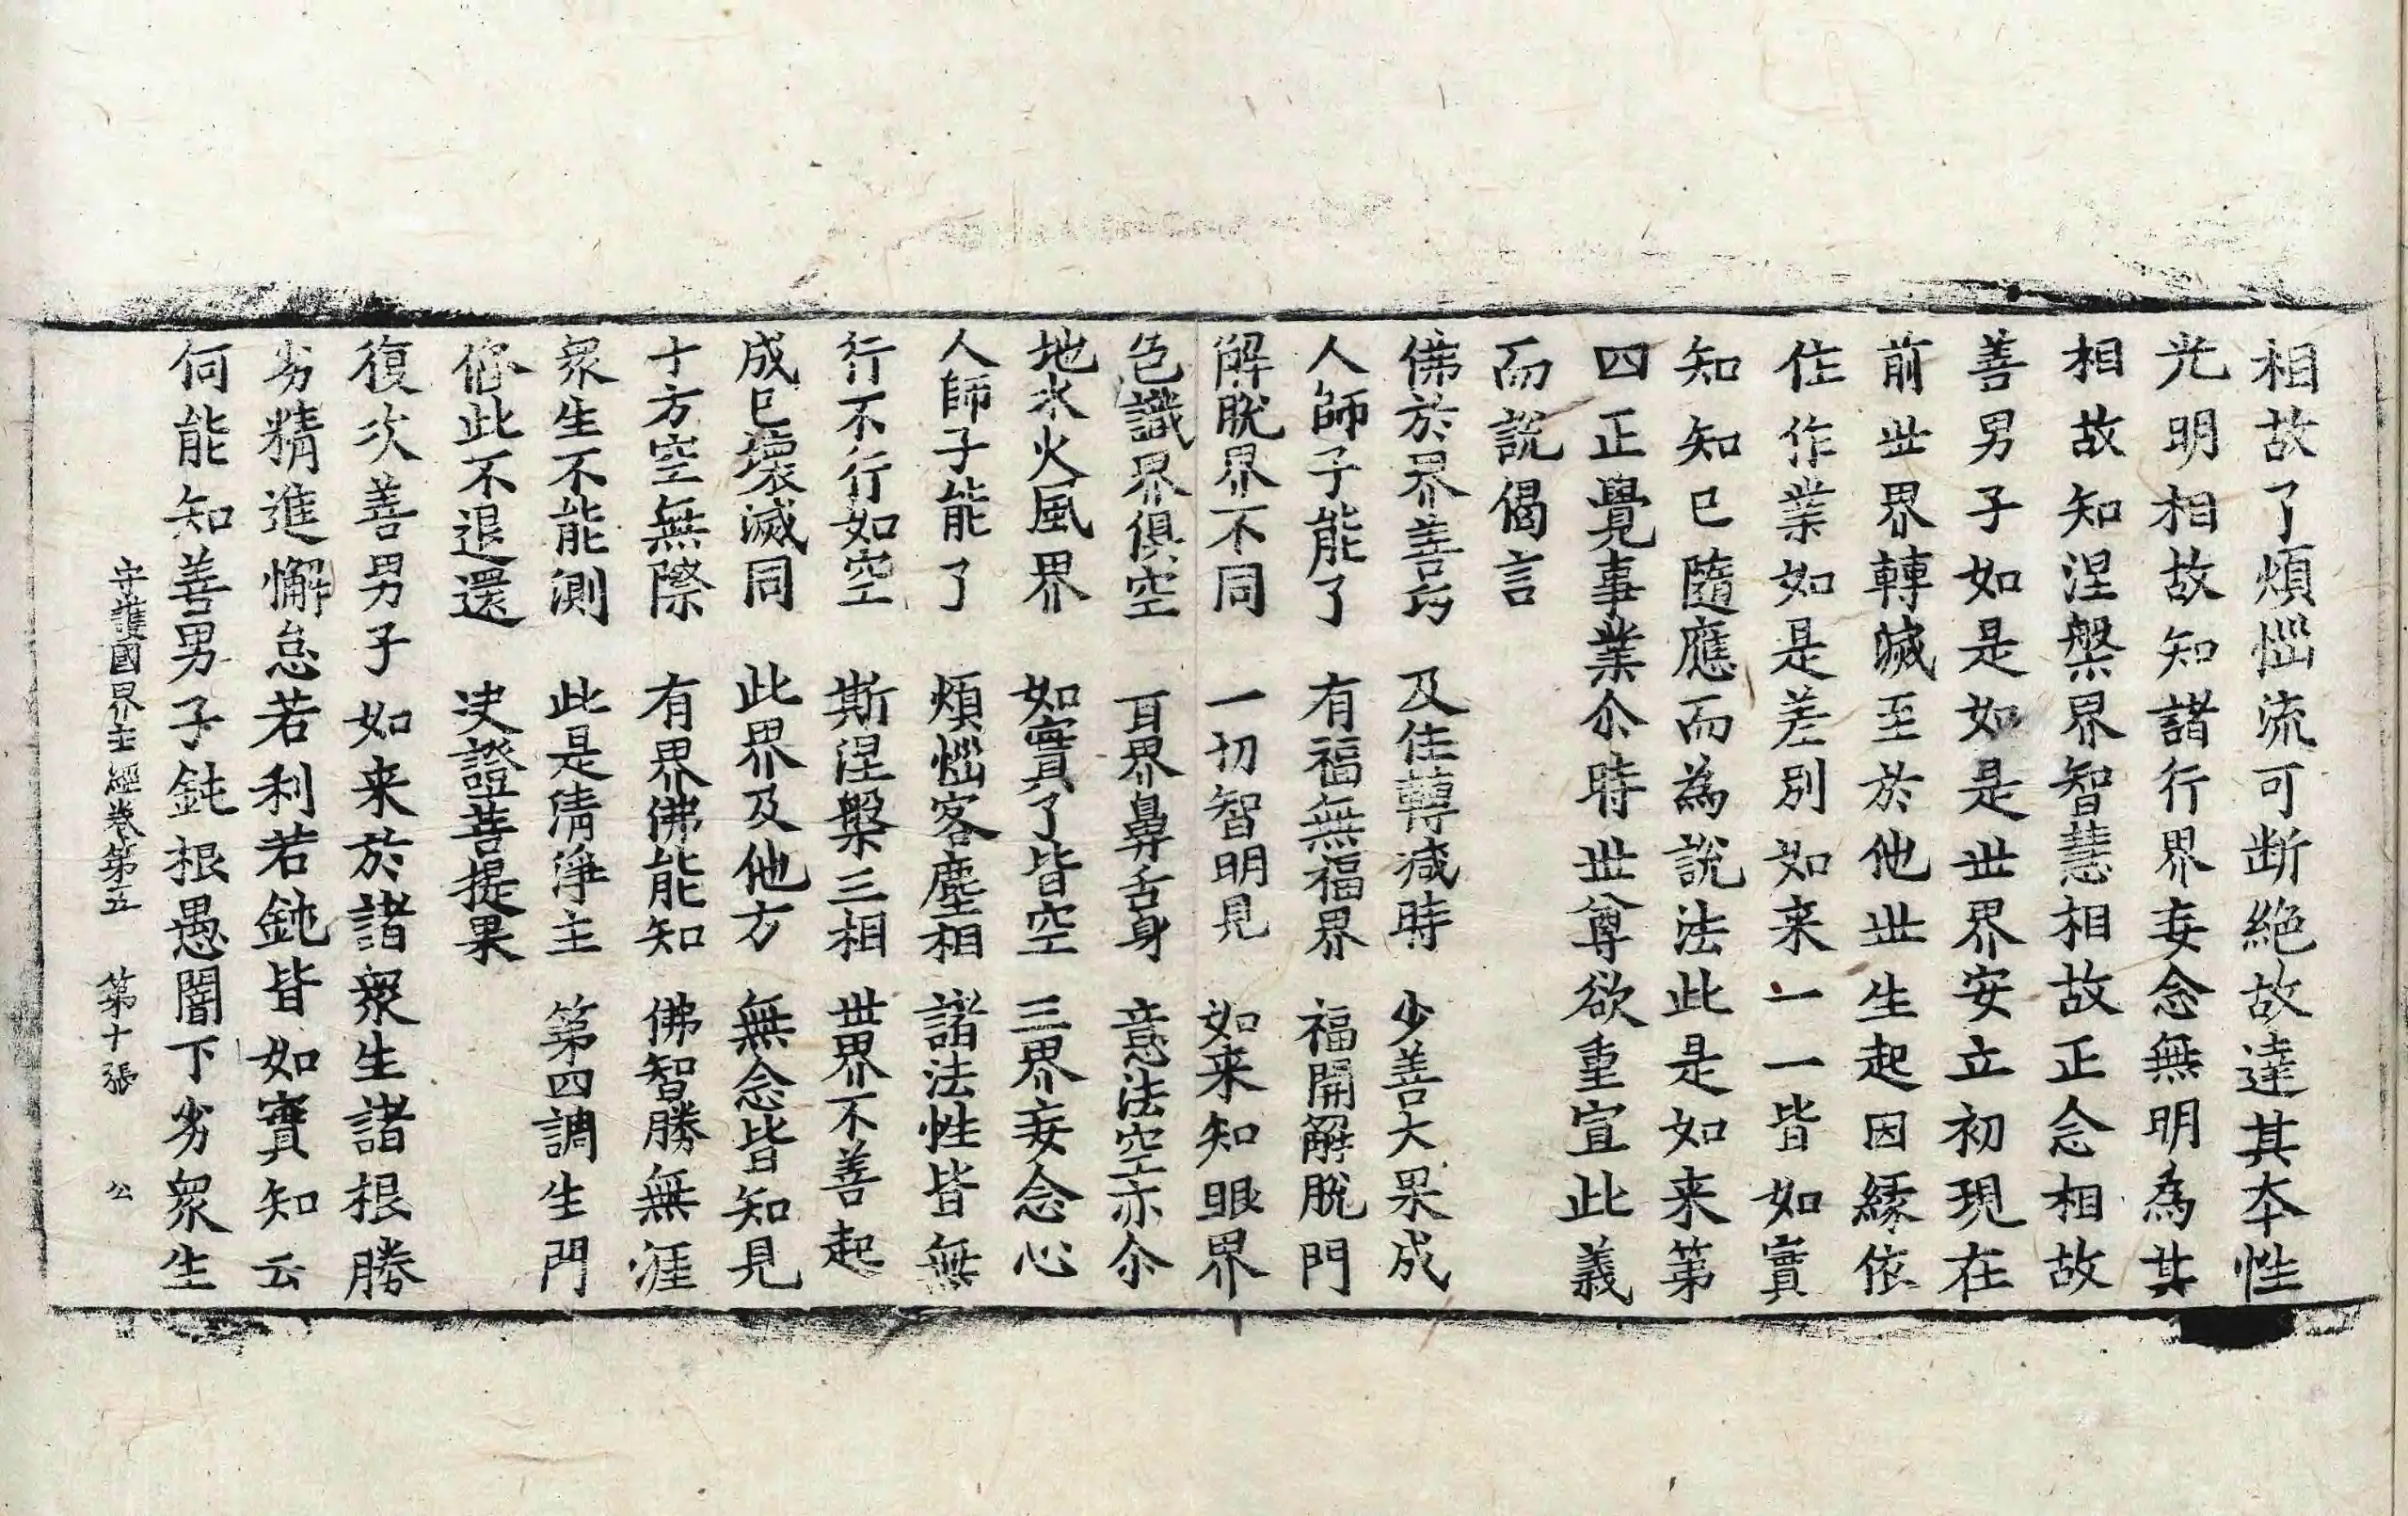 相故了煩惱流可断絶故達其本性
光明相故知諸行界妄念無明為其
相故知涅槃界智慧相故正念相故
善男子如是如是世界安立初現在
前世界轉滅至於他世生起因緣依
住作業如是差別如来一一皆如實
知知已隨應而為說法此是如来第
四正覺事業尒時世尊欲重宣此義
而說偈言
佛於界善巧　及住轉滅時　少善大果成
人師子能了　有福無福界　福開解脫門
解脫界不同　一切智明見　如来知眼界
色識界俱空　耳界鼻舌身　意法空亦尒
地水火風界　如實了皆空　三界妄念心
人師子能了　煩惱客塵相　諸法性皆無
行不行如空　斯涅槃三相　世界不善起
成已壞滅同　此界及他方　無念皆知見
十方空無際　有界佛能知　佛智勝無涯
衆生不能測　此是清淨主　第四調生門
修此不退還　決證菩提果
復次善男子如来於諸衆生諸根勝
劣精進懈怠若利若鈍皆如實知云
何能知善男子鈍根愚闇下劣衆生
守護國界主經卷第五　第十張　公